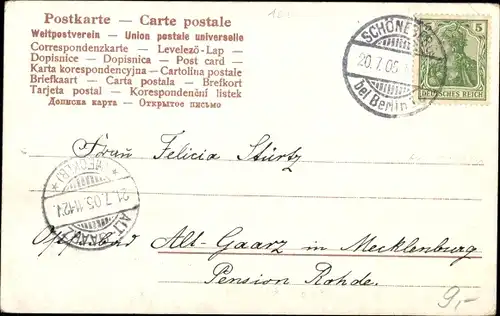 Postkarte — Carte postale
Weltpostverein — Union postale universelle
Correspondenzkarte — Levelező-Lap —
Dopisnice — Dopisnica — Post card —
Karta korespondencyjna — Cartolina postale
Briefkaart — Carta postala — Brefkort
Tarjeta postal — Korespondenční lístek
Дописна карта — Открытое письмо
SCHÖNEB
20.7.05
bei Berlin
5
DEUTSCHES REICH
Frau Felicia Stürtz
21.7.05.11-12V
ALT
Alt-Gaarz in Mecklenburg
Pension Rohde.
9,-